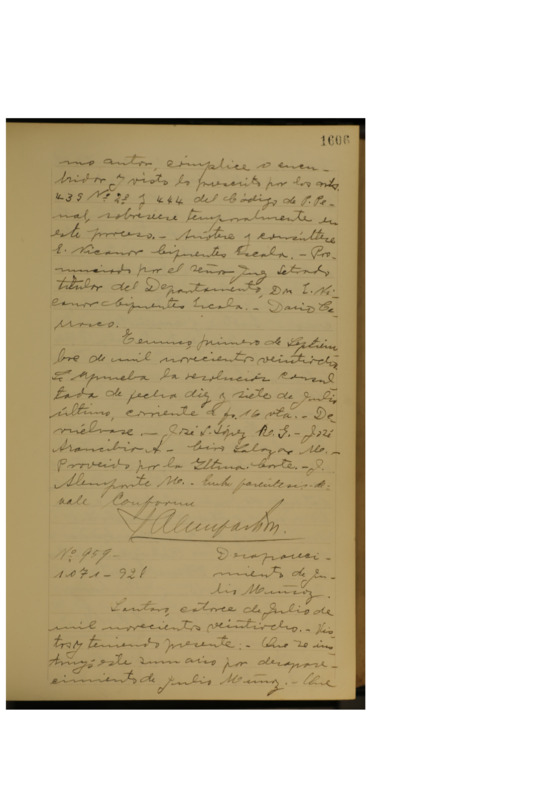 1606
mo autor, cómplice o encu-
bridor y visto lo prescrito por los arts.
439 Nº 2º y 444 del Código de P. Pe-
nal, sobreseese temporalmente en
este proceso.- Anótese y consúltese
E. Nicanor Cifuentes Escala.- Pro-
nunciado por el señor Juez Letrado
titular del Departamento, Don E. Ni-
canor Cifuentes Escala.- Dario Ca-
rrasco.
Temuco, primero de Septiem
bre de mil novecientos veintiocho
Se aprueba la resolución consul
tada de fecha diez y siete de Julio
último, corriente a fs. 16 vta.- De
vuélvase.- José S. López R. G.- José
Arancibia A.- Ciro Salazar M.-
Proveído por la Iltma. Corte.- J.
Alemparte M.-
vale Conforme
Nº 959-
1071-928
Desapareci-
miento de Ju-
lio Muñoz.
Lautaro, catorce de Julio de
mil novecientos veintiocho.- Vis
tos y teniendo presente:- Que se ins
truyó este sumario por desapare-
cimiento de Julio Muñoz.- Que